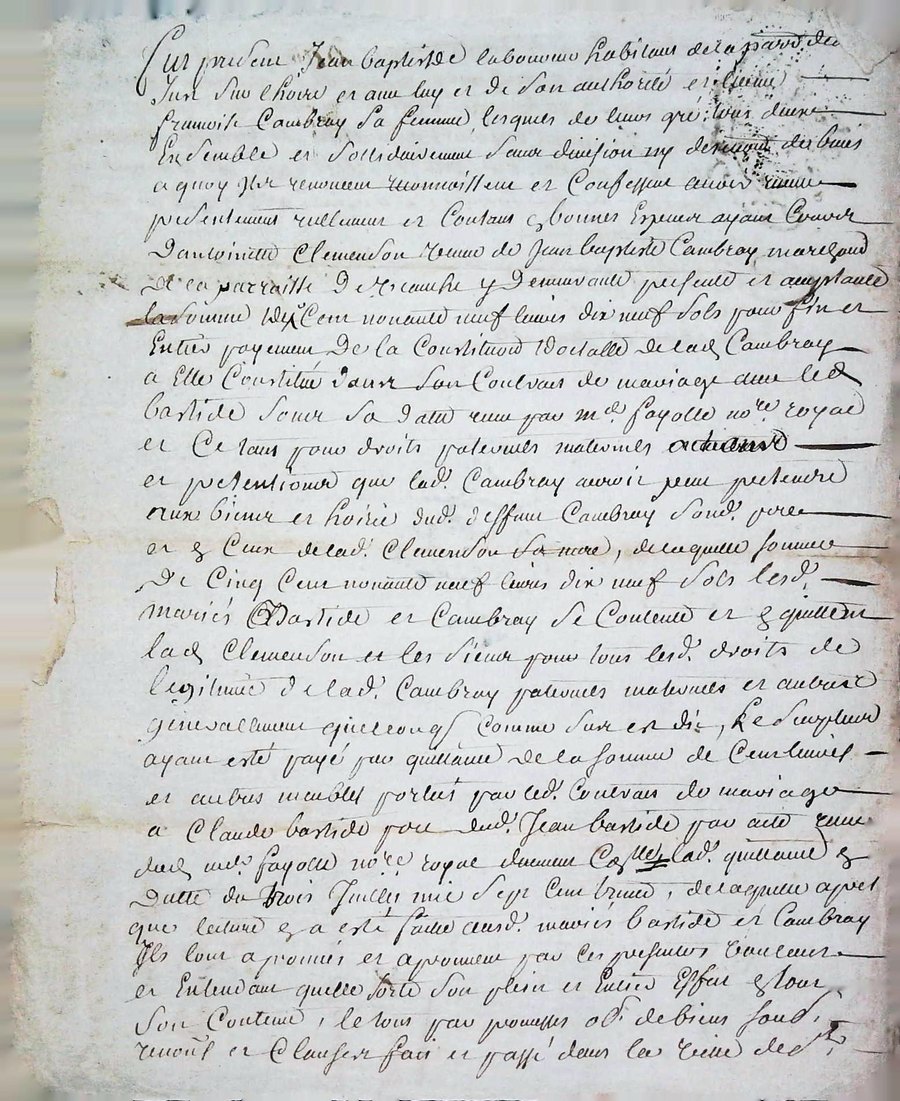 Fut present Jean baptiste laboureur habitant de la parr. de
Jux sur lhoire et avec luy et de son authorité et licence
francoise Cambray sa femme, lesques de leurs gré tous deux
Ensemble et sollidairement sans division ny des biens
a quoy Ilz renoncent reconnoissent et Confessent avoir receu
presentement reellement et Contant en bonnes Especes ayant Cours
Dantoinette Clemenson veuve de Jean baptiste Cambray marchand
de la parroisse De y Demeurante presente et acceptante
la somme de Cent nonante neuf livres dix neuf sols pour fin et
Entier payement De la Constitution dotalle de lad Cambray
a Elle Constitué dans son Contrat de mariage avec led
bastide sous sa datte receu par me. fayolle nore. royal
et Ce tant pour droits paternels maternels
et pretentions que lad. Cambray auroit peu pretendre
aux biens et hoirie dud. deffunt Cambray sond. pere
et en Ceux de lad. Clemenson sa mere, de laquelle somme
De Cinq Cent nonante neuf livres dix neuf sols lesd.
mariés Bastide et Cambray se Contente et en quittent
lad Clemenson et les siens pour tous lesd. droits de
legitime de lad. Cambray paternels maternels et autres
generallement quelconqs Comme sus est dit, le surplus
ayant esté payé par quittance de la somme de Cent livres
et autres meubles portés par led. Contrat de mariage
a Claude bastide pere dud. Jean bastide par acte receu
dud me. fayolle nore. royal lad. quittance en
Datte du trois Juillet mil sept Cent trente, de laquelle apres
que lecture en a esté faite ausd. mariés bastide et Cambray
Ils lont aprouvés et aprouvent par Ces presentes voulant
et Entendant quelle sorte son plein et Entier Effet en tout
son Contenu, le tout par promesses ob. de biens soud.
renons et Clauses fait et passé dans la ville de St